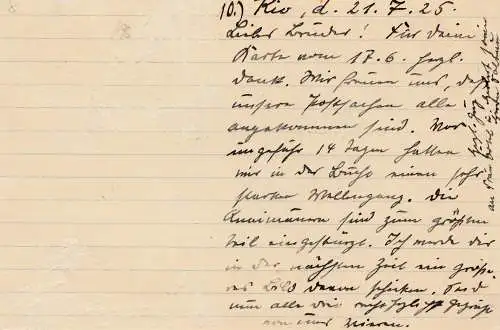 10.) Rio, d. 21.7.25.
Lieber Bruder! Für deine
Karte vom 17.6. herzl.
Dank. Wir freuen uns, daß
unsere Postsachen alle
angekommen sind. Vor
ungefähr 14 Tagen hatten
wir in der Bucht einen sehr
starken Wellengang. Die
Kaimauern sind zum größten
Teil eingestürzt. Ich werde dir
in der nächsten Zeit ein größe-
res Bild davon schicken. Seid
nun alle drei recht herzlich gegrüßt
von uns